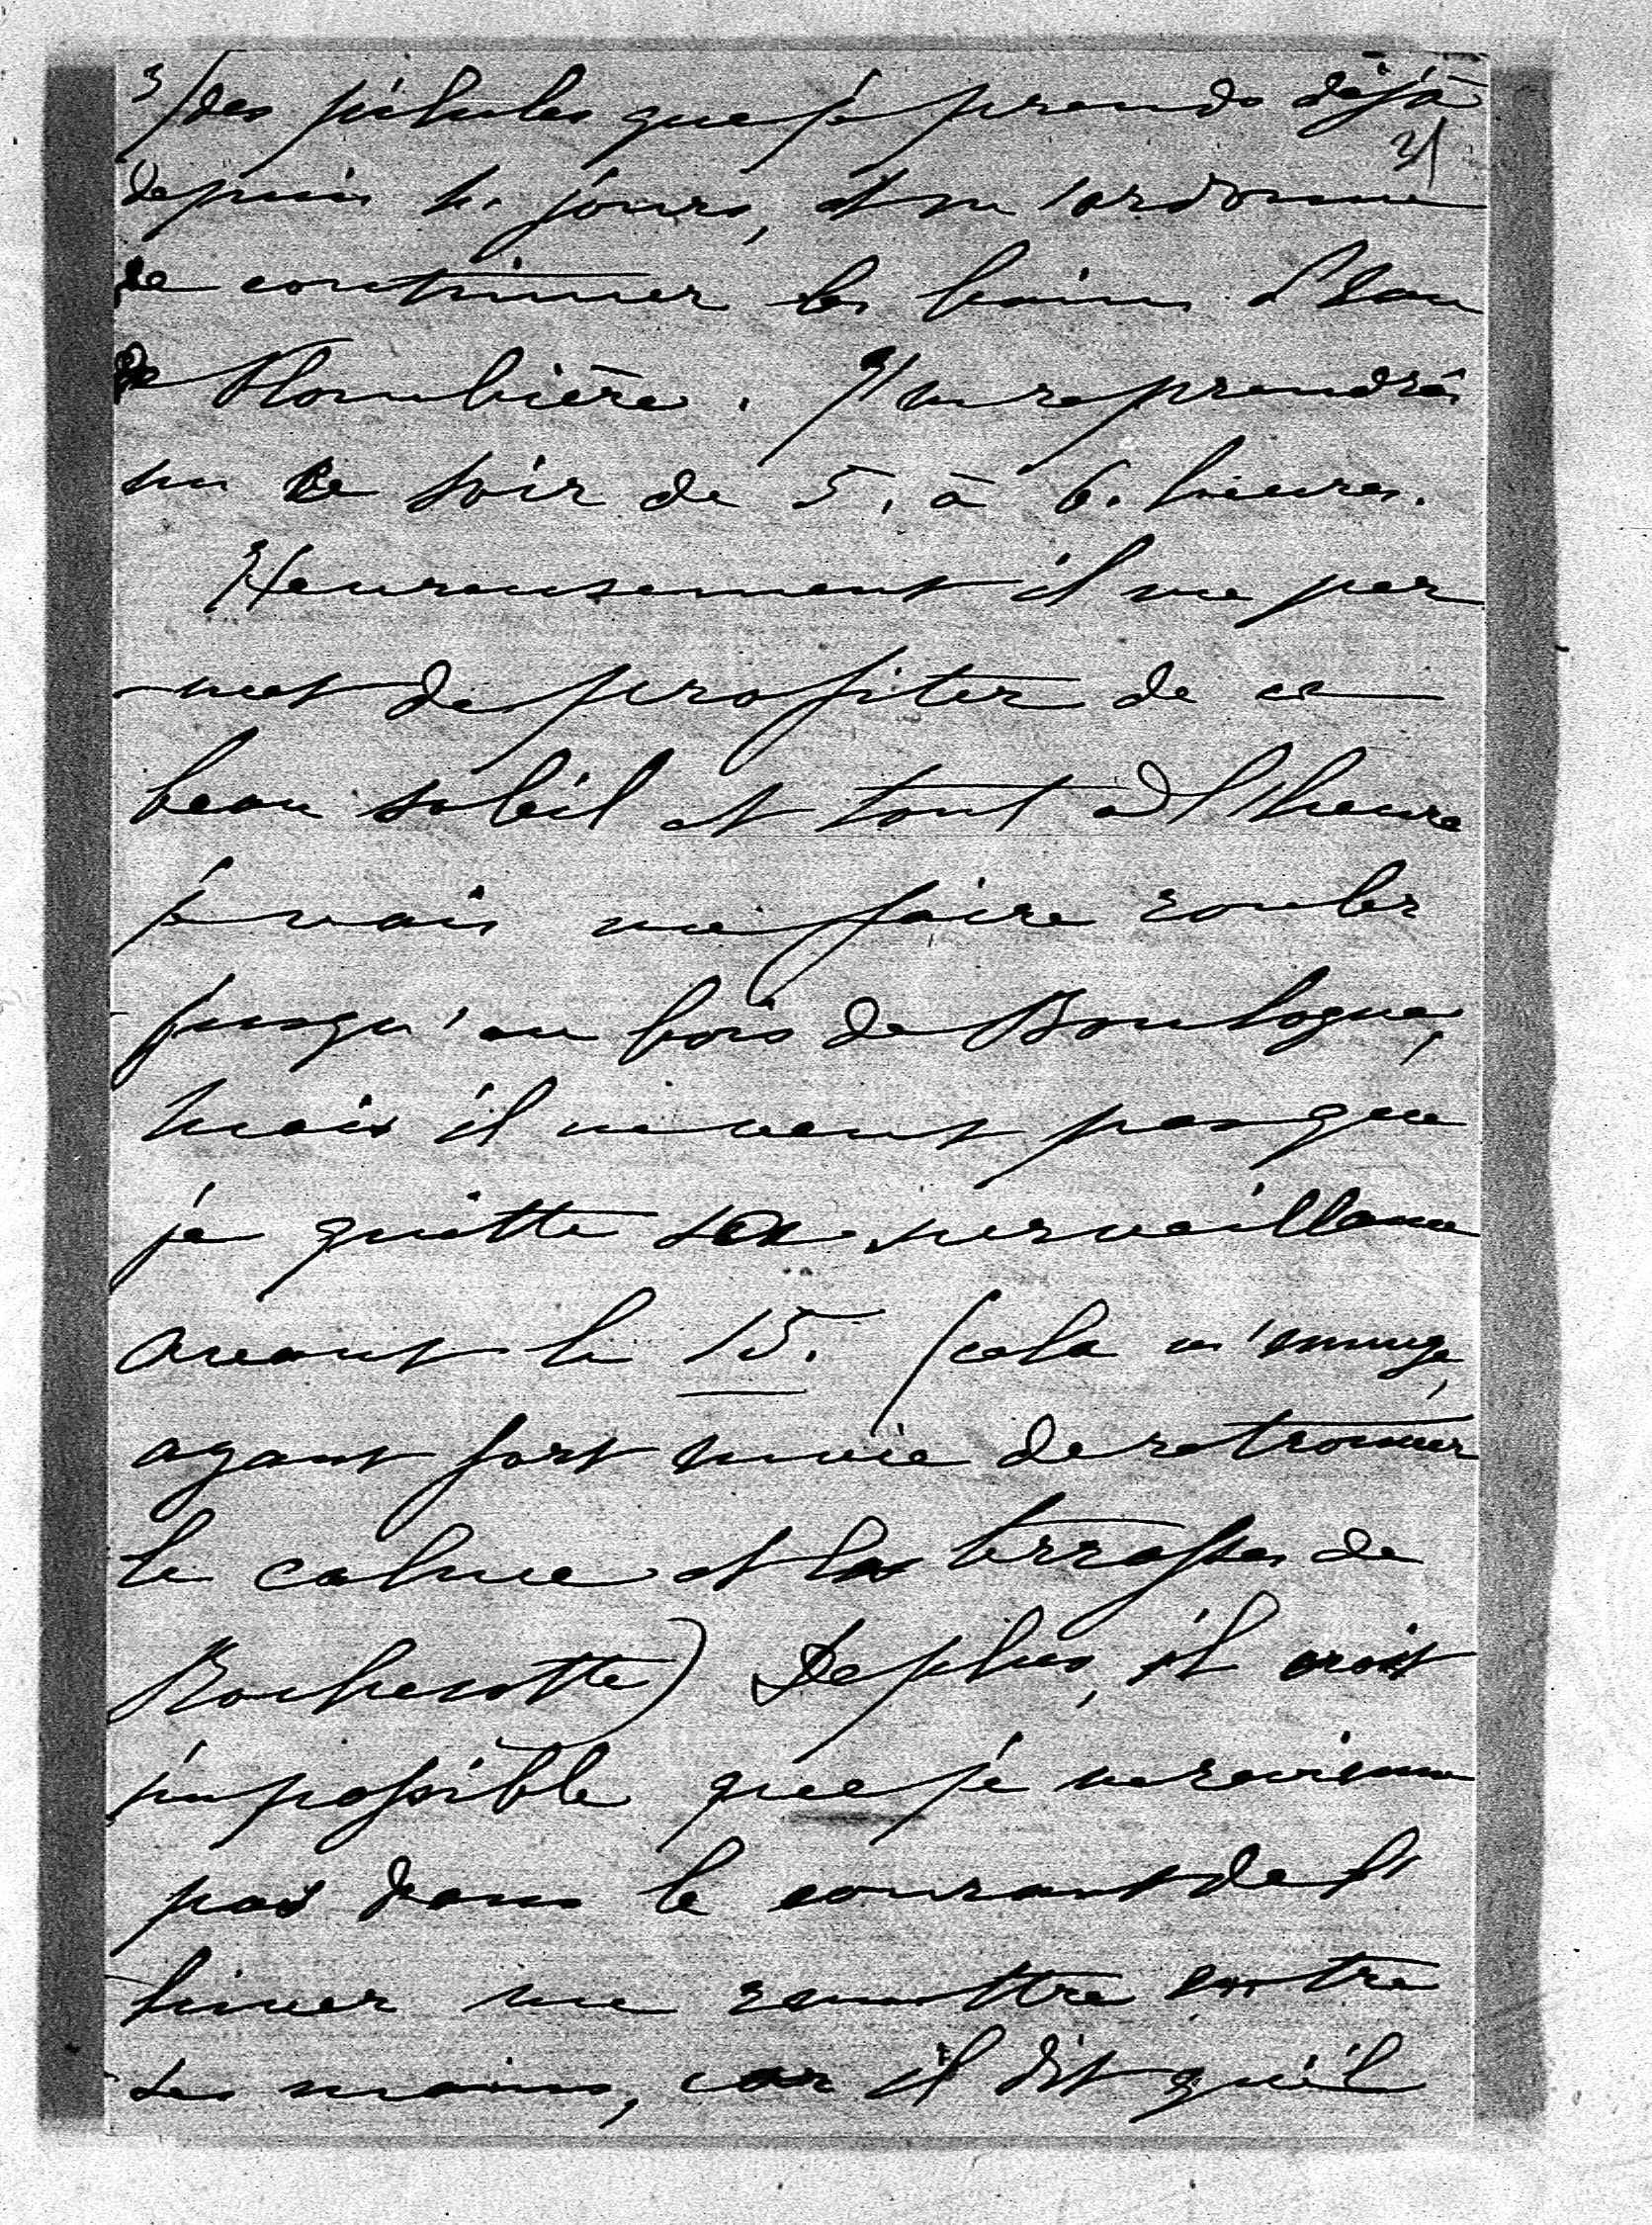 3/ des pilules que je prends déjà
31
depuis 4. jours, et m'ordonne
de continuer les bains d'eau
de Plombière. J'en reprendrai
un ce soir de 5. à 6. heures.
Heureusement il me per
-met de profiter de ce
beau soleil et tout à l'heure
je vais me faire rouler
jusqu'au bois de Boulogne,
mais il ne veut pas que
je quitte sa surveillance
avant le 15. (cela m'ennuye,
ayant fort envie de retrouver
le calme et les terrasses de
Rochecotte) De plus, il croit
impossible que je ne revienne
pas dans le courant de l'
hiver me remettre entre
ses mains, car il dit qu'il